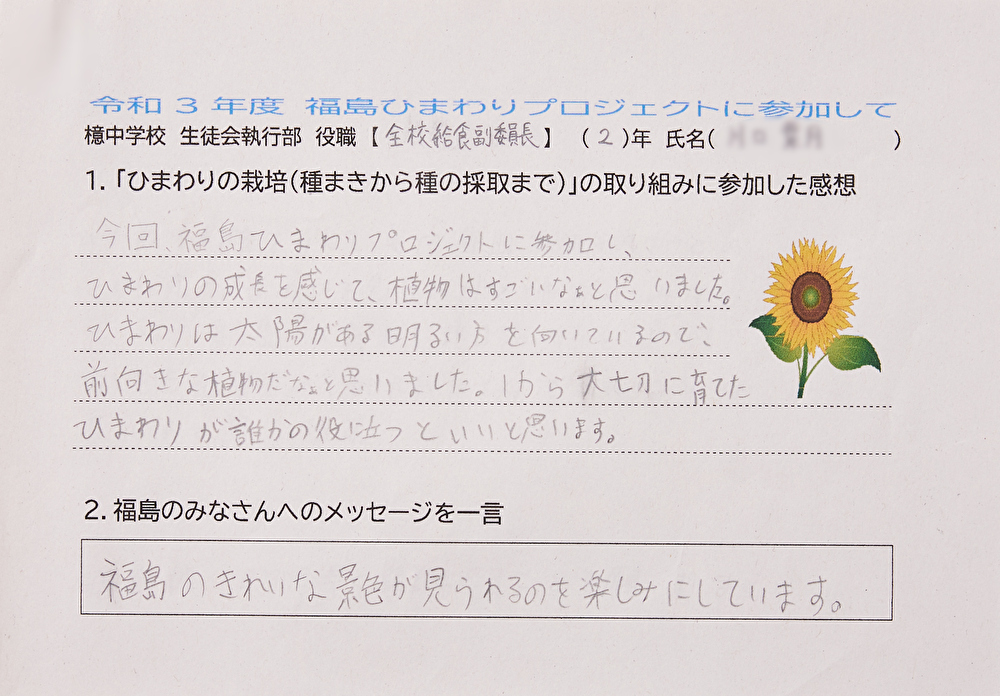 令和３年度 福島ひまわりプロジェクトに参加して
檍中学校 生徒会執行部 役職【全校給食副委員長】 （２）年 氏名（ ）
１．「ひまわりの栽培（種まきから種の採取まで）」の取り組みに参加した感想
今回、福島ひまわりプロジェクトに参加し、
ひまわりの成長を感じて、植物はすごいなぁと思いました。
ひまわりは太陽がある明るい方を向いているので、
前向きな植物だなぁと思いました。1から大切に育てた
ひまわりが誰かの役に立つといいと思います。
２．福島のみなさんへのメッセージを一言
福島のきれいな景色が見られるのを楽しみにしています。